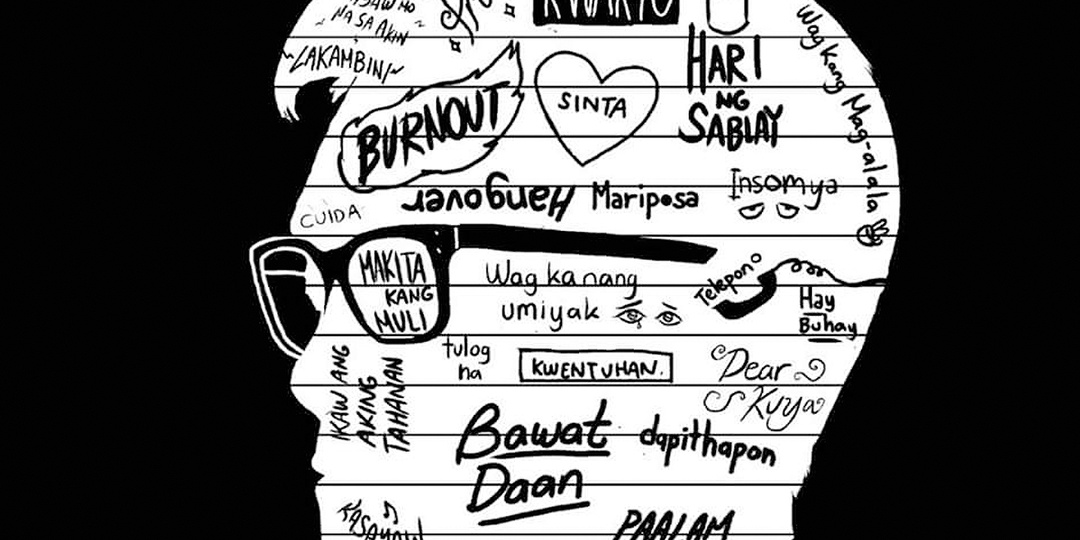 NA SA AKIN
KWARTO
LAKAMBINI
HARI
NG
SABLAY
Wag kang Mag-alala
BURNOUT
SINTA
Hangover
Mariposa
Insomya
CUIDA
MAKITA
KANG
MULI
Wag ka nang
umiyak
Telepono
Hay
Buhay
tulog
na
KWENTUHAN.
Dear
Kuya
IKAW ANG
AKING
TAHANAN
Bawat
Daan
dapithapon
KASAYAW
PAALAM